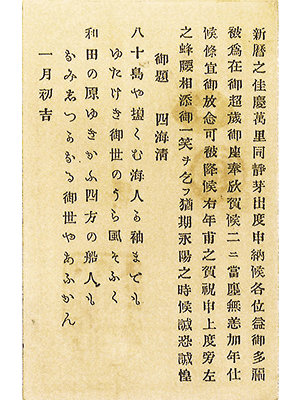 新暦之佳慶萬里同靜芽出度申納候各位益御多福
被爲在御超歳御座奉欣賀候二ニ當塵無恙加年仕
候條宜御放念可被降候右年甫之賀祝申上度旁左
之蜂腰相添御一笑ヲ乞フ猶期永陽之時候誠恐誠惶
御題　四海清
八十島や塩くむ海人の袖まても
ゆたけき御世のうら風そふく
和田の原ゆきかふ四方の船人も
なみ志つかなる御世やあふかん
一月初吉